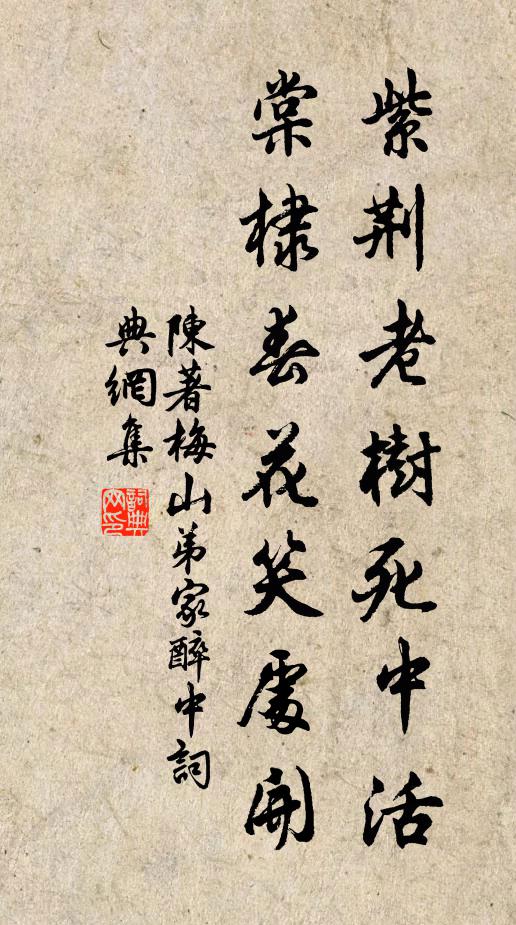 紫荆老樹死中活
棠棣春花笑處開
陳著梅山弟家醉中詞
典網集
詞典网印